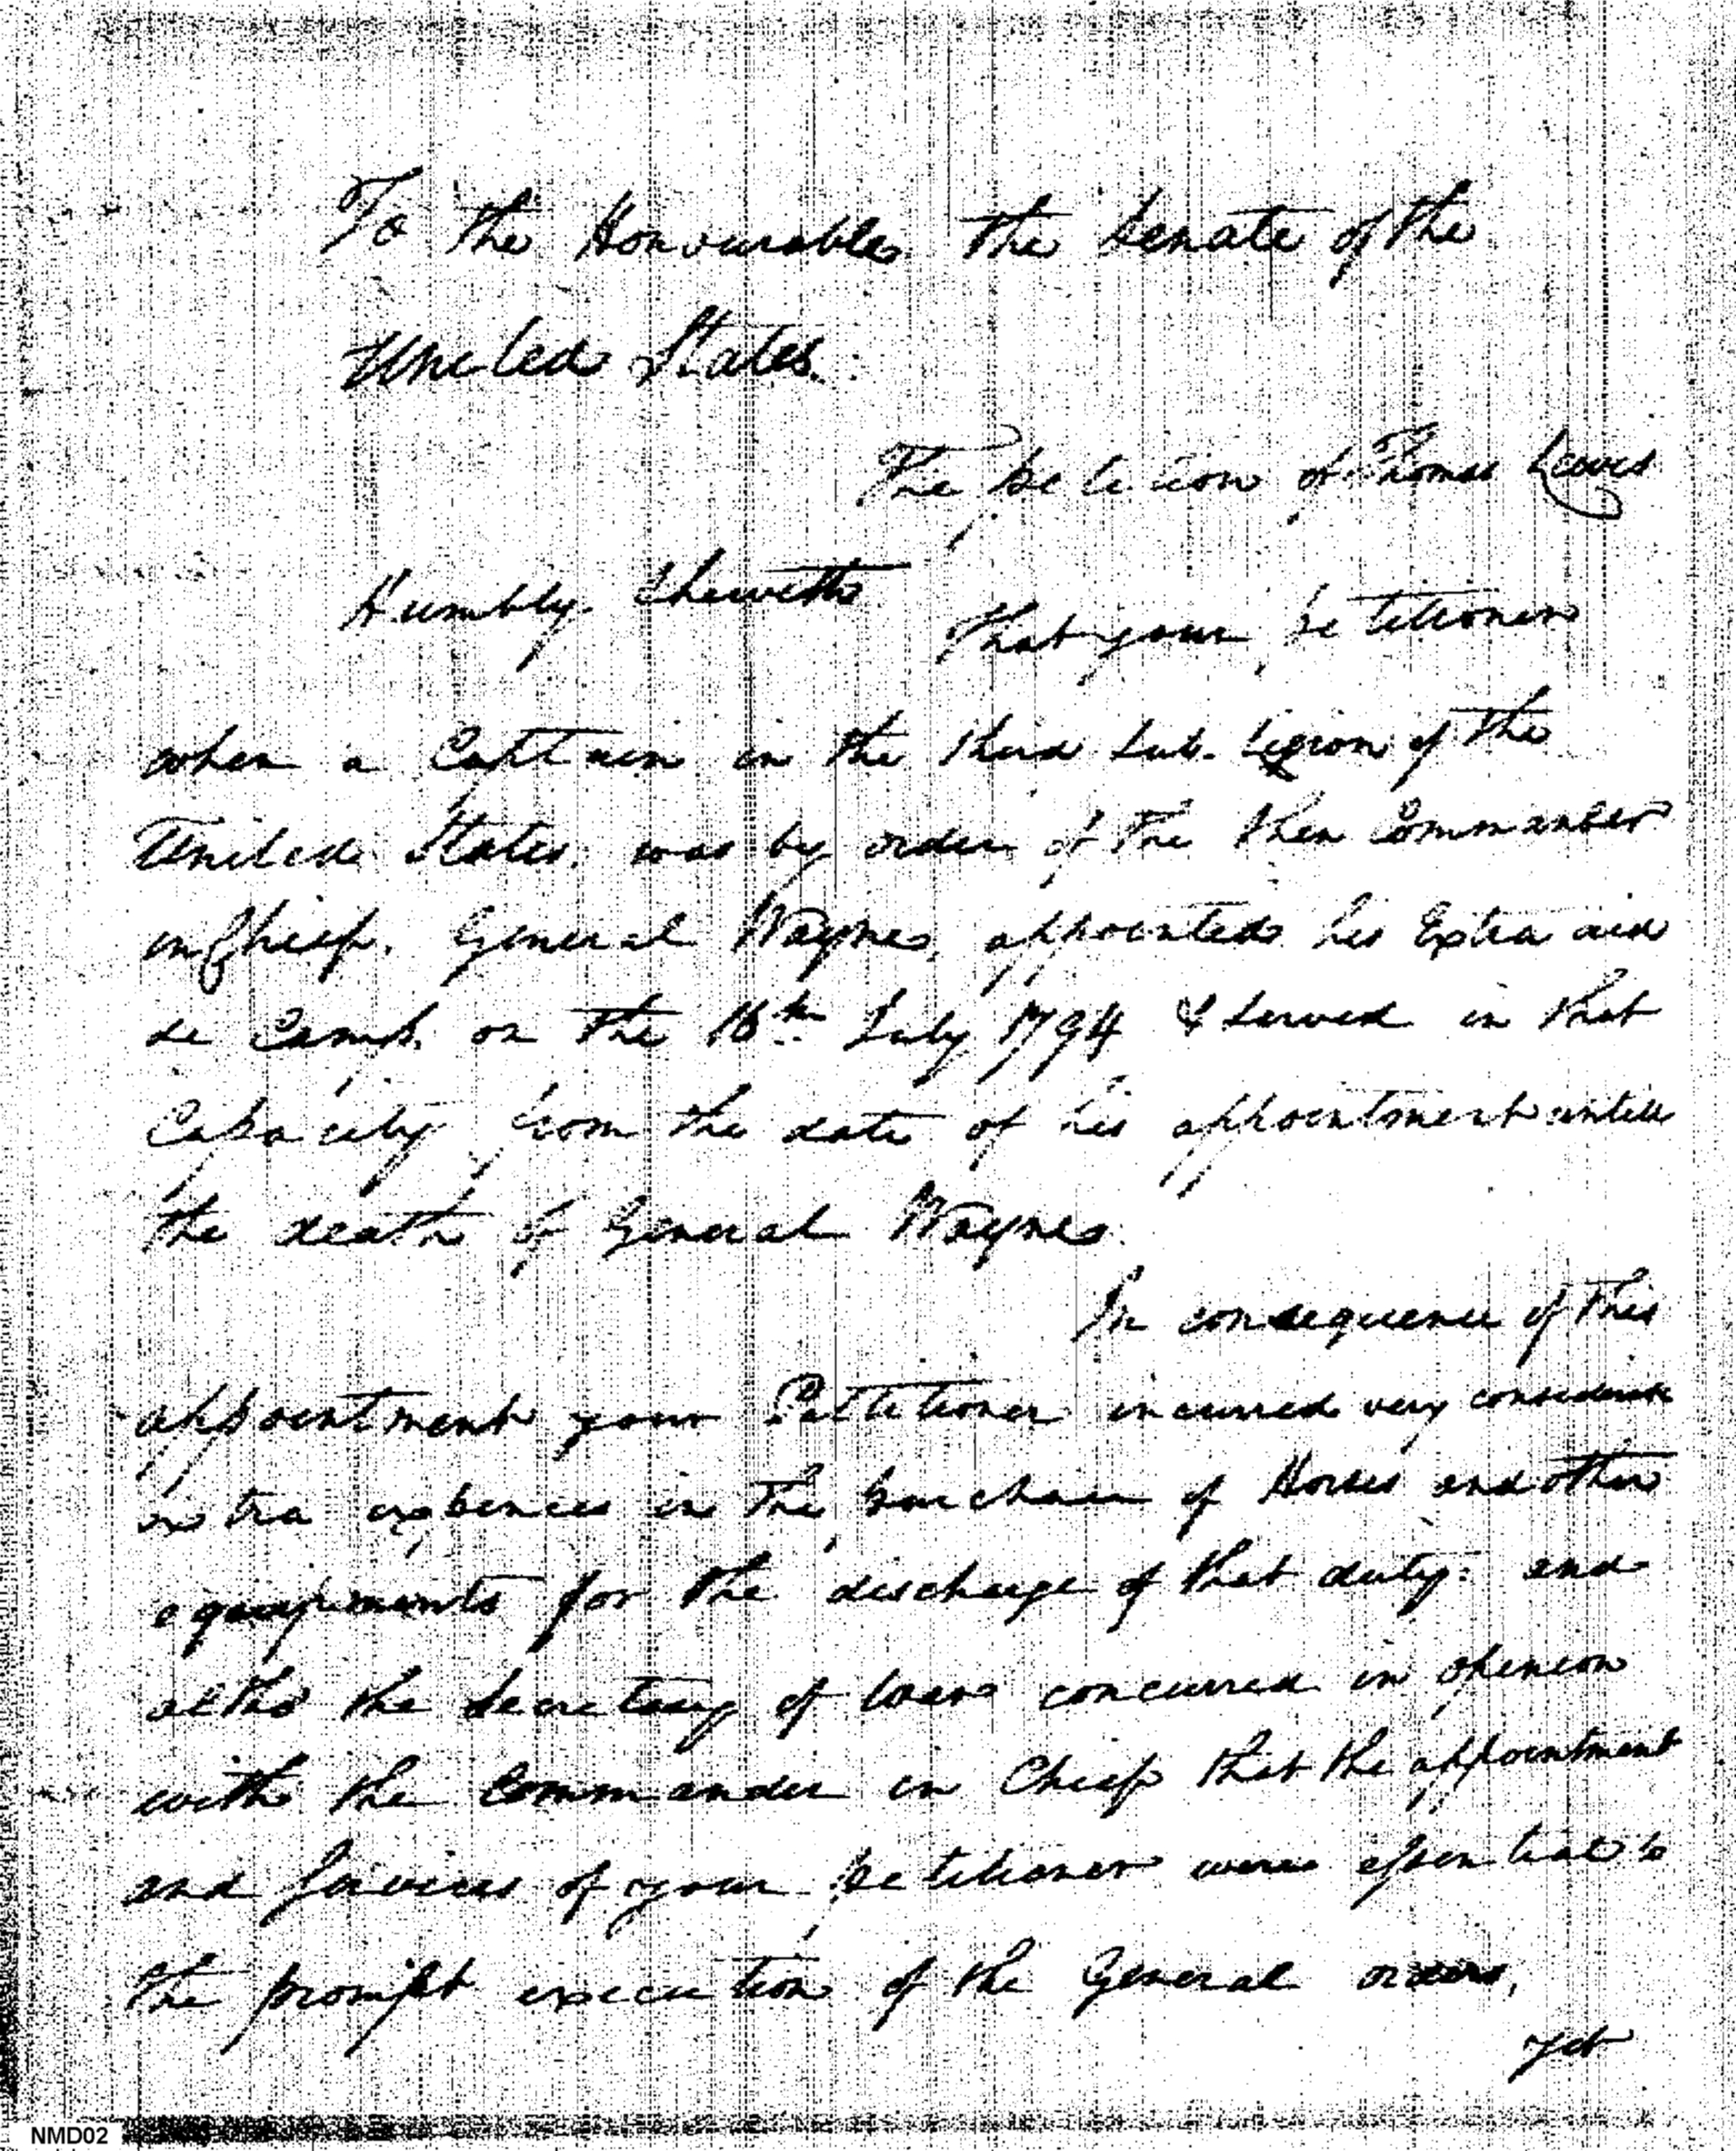 To the Honourable the Senate of the
United States.
The petition of Thomas Lewis
Humbly Sheweth
That your petitioner
when a Captain in the third Sub. Legion of the
United States was by order of the then Commander
in Chief, General Wayne, appointed his Extra aid
de Camp, on the 16th July 1794 & served in that
Capacity from the date of his appointment untill
the death of General Wayne.
In consequence of this
appointment your Petitioner incurred very
extra expences in the purchase of Horses and other
equipments for the discharge of that duty: and
altho the Secretary of War concurred in opinion
with the Commander in Chief that the appointment
and Services of your petitioner were essential to
the prompt execution of the General orders,
yet
NMD02